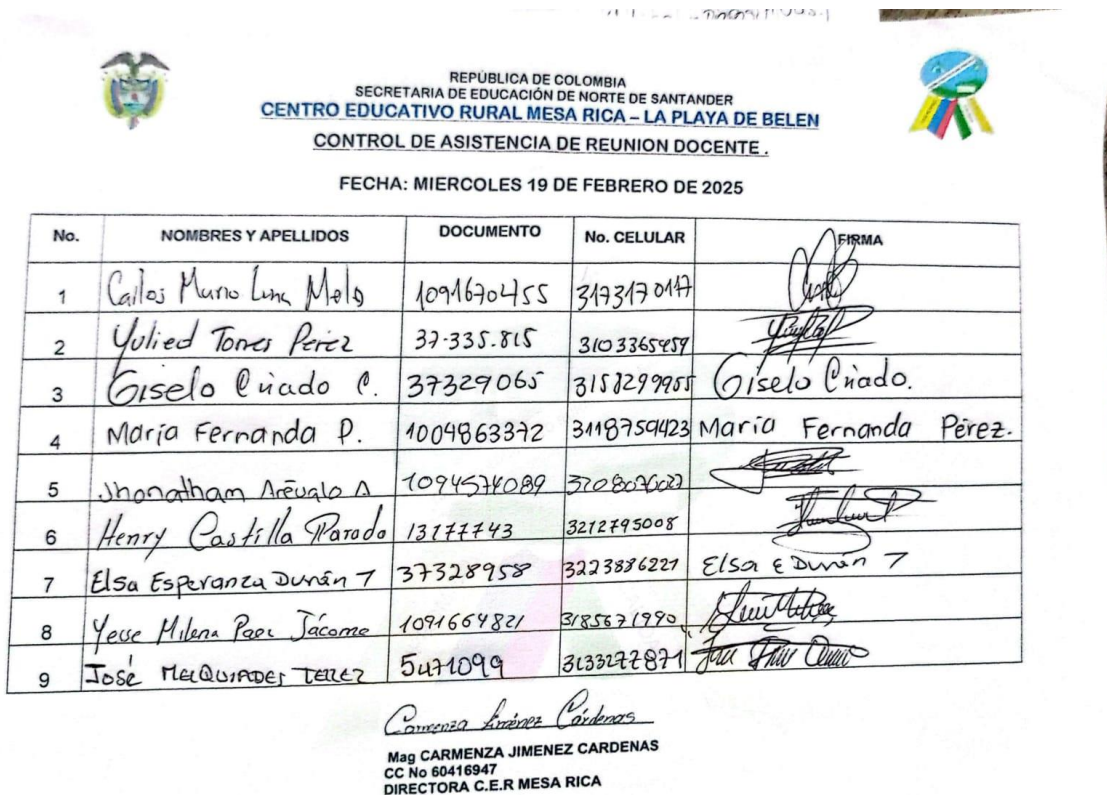 REPÚBLICA DE COLOMBIA
SECRETARIA DE EDUCACIÓN DE NORTE DE SANTANDER
CENTRO EDUCATIVO RURAL MESA RICA – LA PLAYA DE BELEN
CONTROL DE ASISTENCIA DE REUNION DOCENTE .
FECHA: MIERCOLES 19 DE FEBRERO DE 2025
No. NOMBRES Y APELLIDOS DOCUMENTO No. CELULAR FIRMA
1 Carlos Mario Luna Melo 1091670455 3173170117
2 Yulied Torres Pérez 37-335.815 3103365959
3 Giselo Criado C. 37329065 3158299955 Giselo Criado.
4 María Fernanda P. 1004863372 3118759423 María Fernanda Pérez.
5 Jhonatham Arévalo A 1094574089
6 Henry Castilla Parado 13177743 3212795008
7 Elsa Esperanza Durán T 37328958 3223886221 Elsa E Durán T
8 Milena Jácome 1091664821 3185671990
9 José 5471099 3133277871
Carmenza Jiménez Cárdenas
Mag CARMENZA JIMENEZ CARDENAS
CC No 60416947
DIRECTORA C.E.R MESA RICA